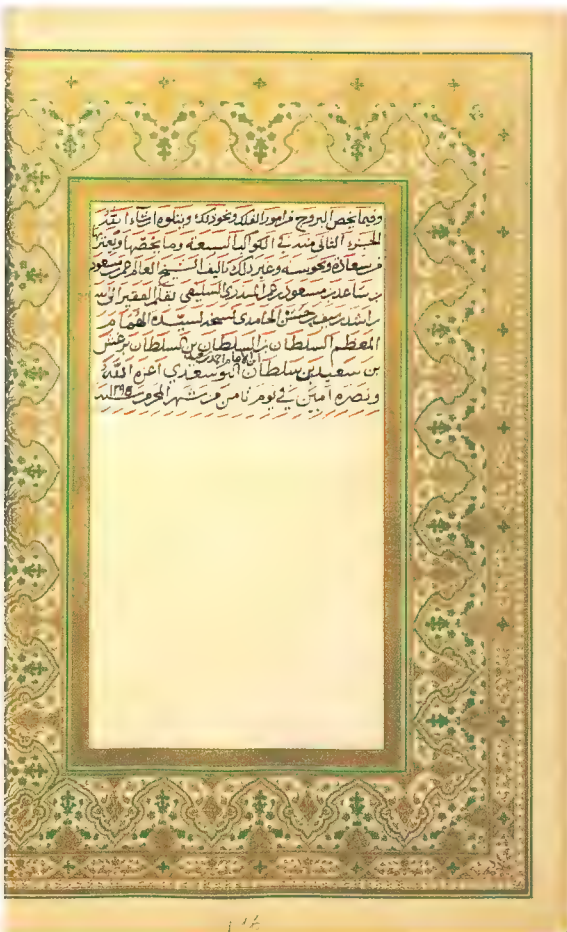 وفيما يخص البروج من امور الفلك ونحو ذلك ويتلوه ان شاء الله
الجزء الثاني منه في الكواكب السبعة وما يخصها ويعتريها
من سعادة ونحوسه وغير ذلك تاليف الشيخ العالم عمر بن مسعود
بن ساعد بن مسعود بن عمر المنذري السليفي نقله الفقير لله
راشد بن سيف بن حسن الحامدي نسخه لسيده الهمام
المعظم السلطان بن السلطان بن السلطان برغش
بن سعيد بن سلطان بن الامام احمد بن سعيد البوسعيدي اعزه الله
ونصره امين في يوم ثامن من شهر المحرم سنة ١٢٩٥